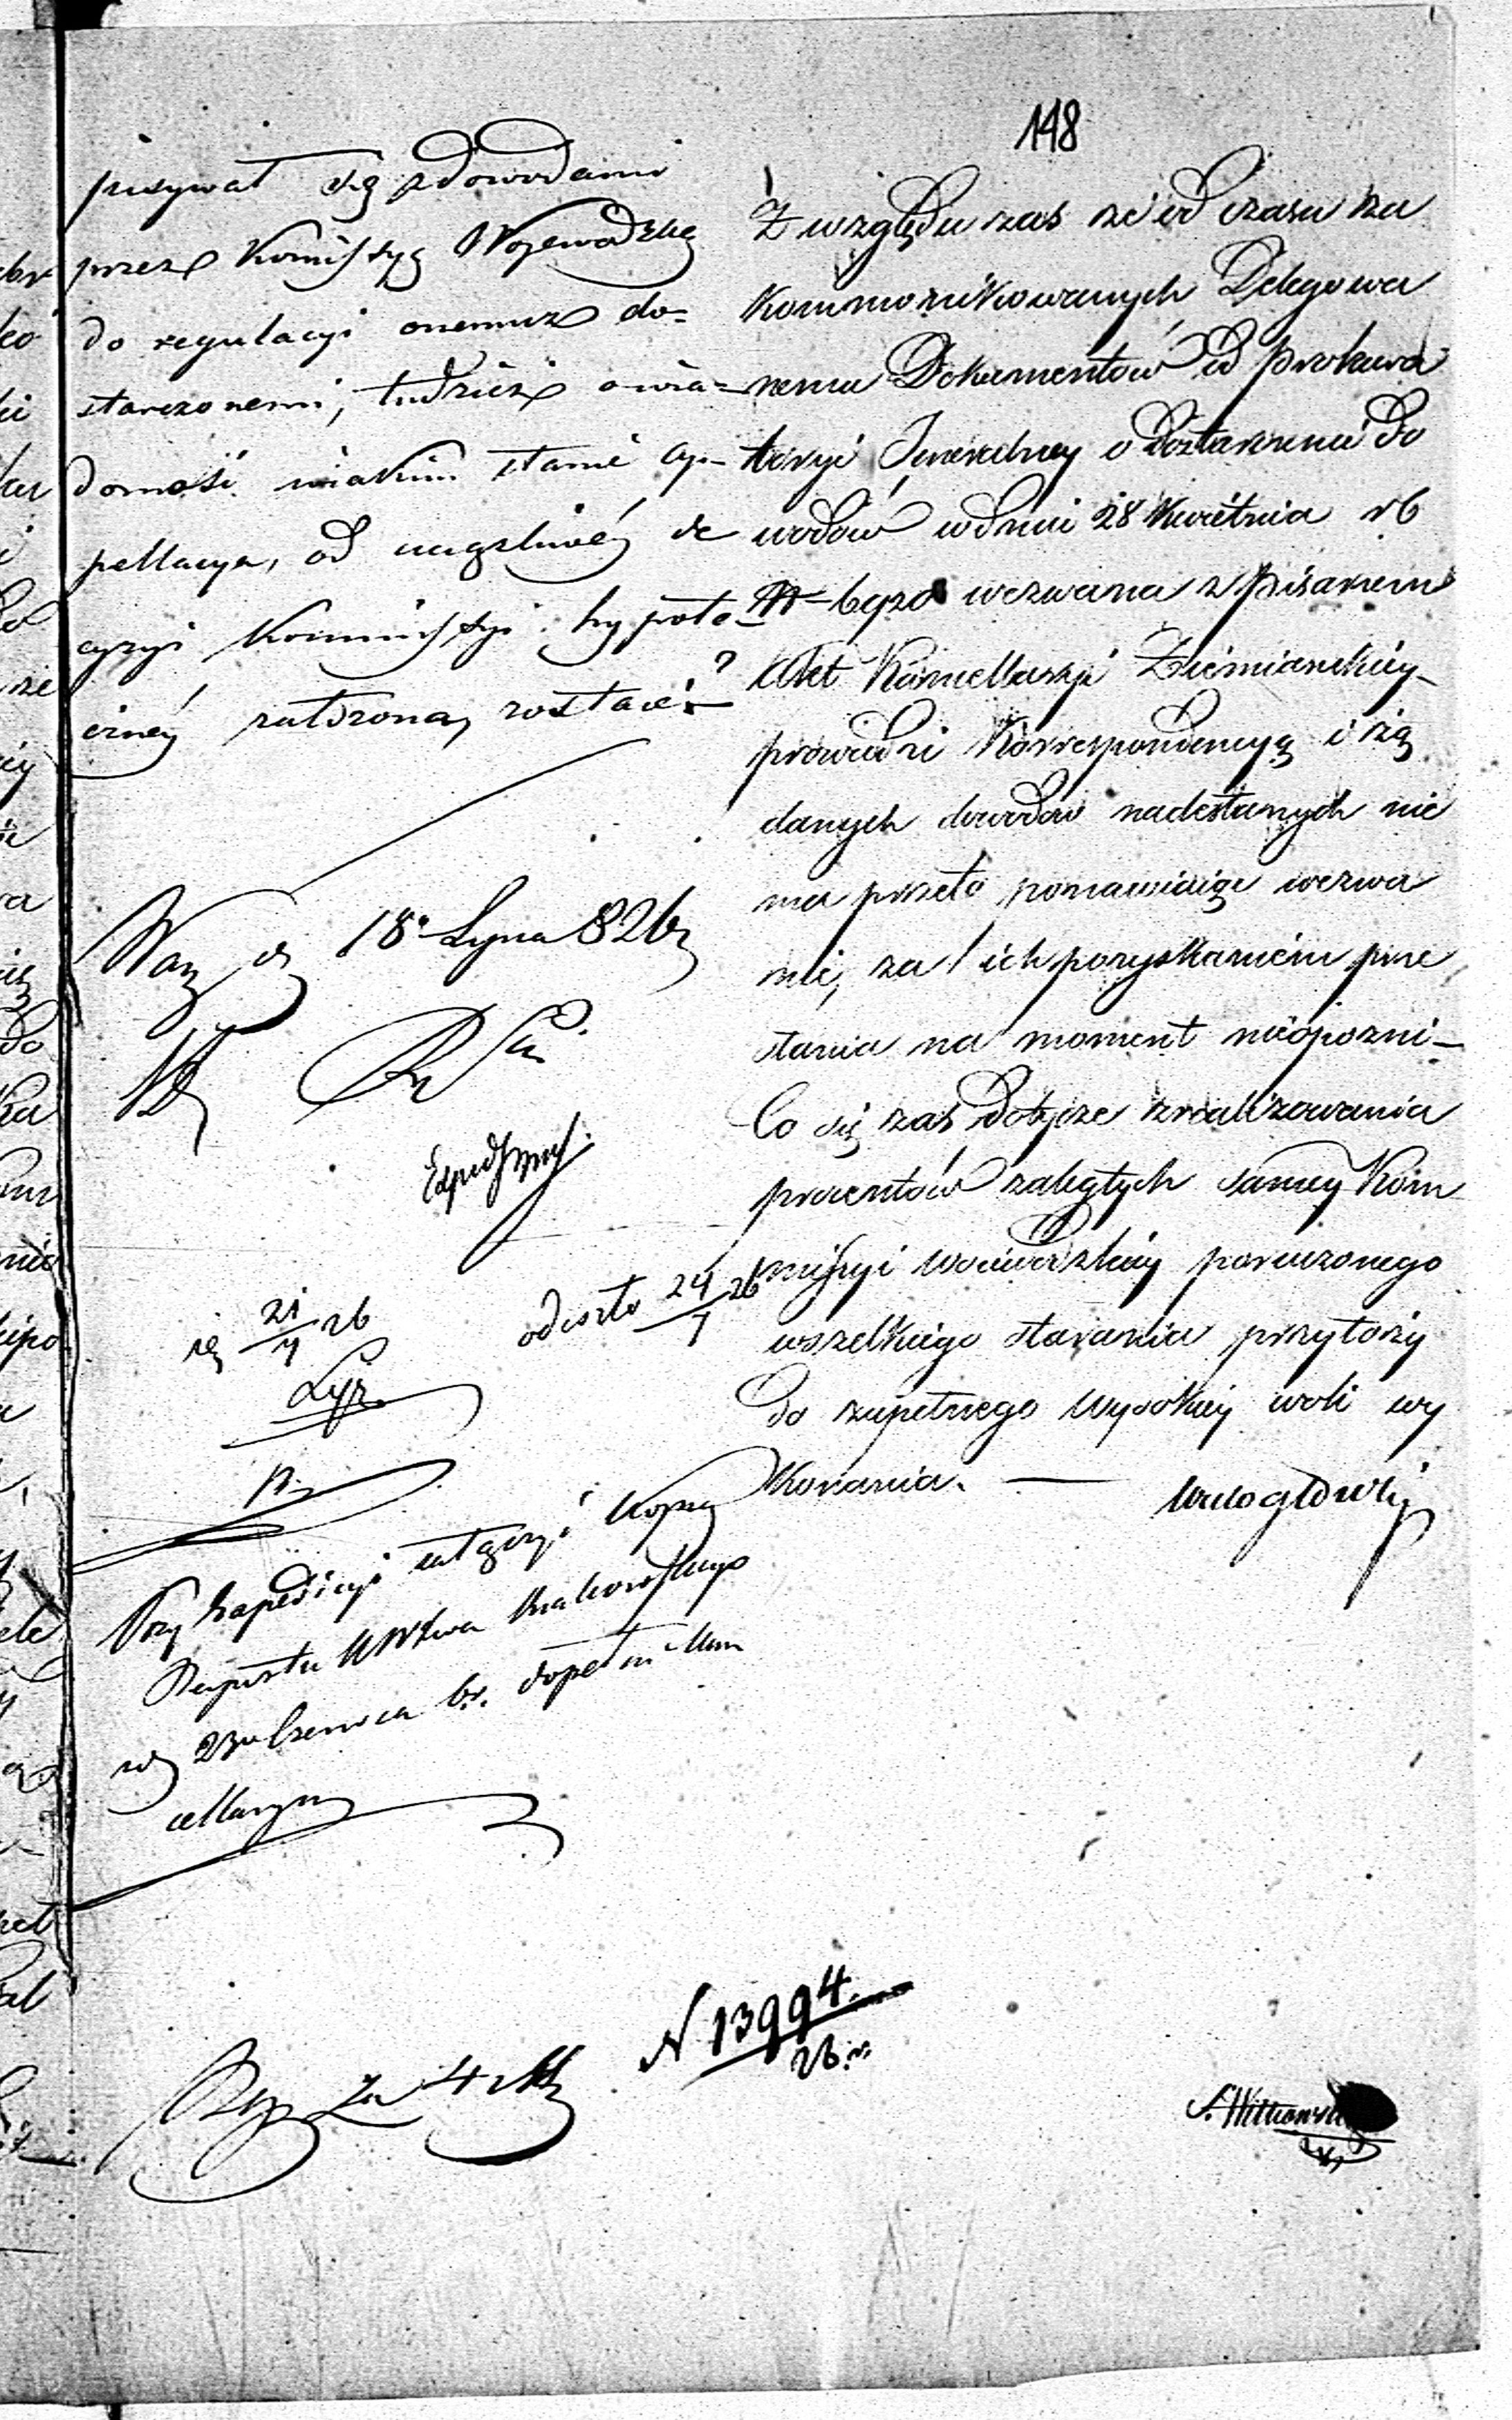 148
pisywał się z dowodami
przez Kommissyą Wojewódzką
do regulacyi onemuż do=
starczonemi, tudzież o wia=
domość w iakim stanie ap-
pellacya, od uciążliwéy de
cyzyi Kommissyi hypote
cznéy założona, zostaie?
Warz d 18 Lipca 826
Expedyowa
21/7 26
odeszło 24/7 26
Lyz.
Przy Expedicyi załączyć kopią
Raportu KWztwa Krakowskiego
23 Czerwca br.
Z względu zaś że od czasu za
kommonikowanych Delegowa
nemu Dokumentów od prokura
toryi Jeneralney o dostarczenie do
wodów w dniu 28 Kwietnia rb
wezwana z Pisarzem
Akt Kancellaryi Ziemiańskiey
prowadzi Korrespondencyą i żą
danych dowodów nadesłanych nie
ma przeto ponawiaiąc wezwa
nie, za ich pozyskaniem prze
słania na moment nieopozni—
Co się zaś dotycze zrealizowania
procentów zaległych samey Kom
missyi Woiewódzkiey poruczonego
wszelkiego starania przyłoży
do zupełnego wysokiey woli wy
konania. — Wielogłowski
N 13994
26 r.